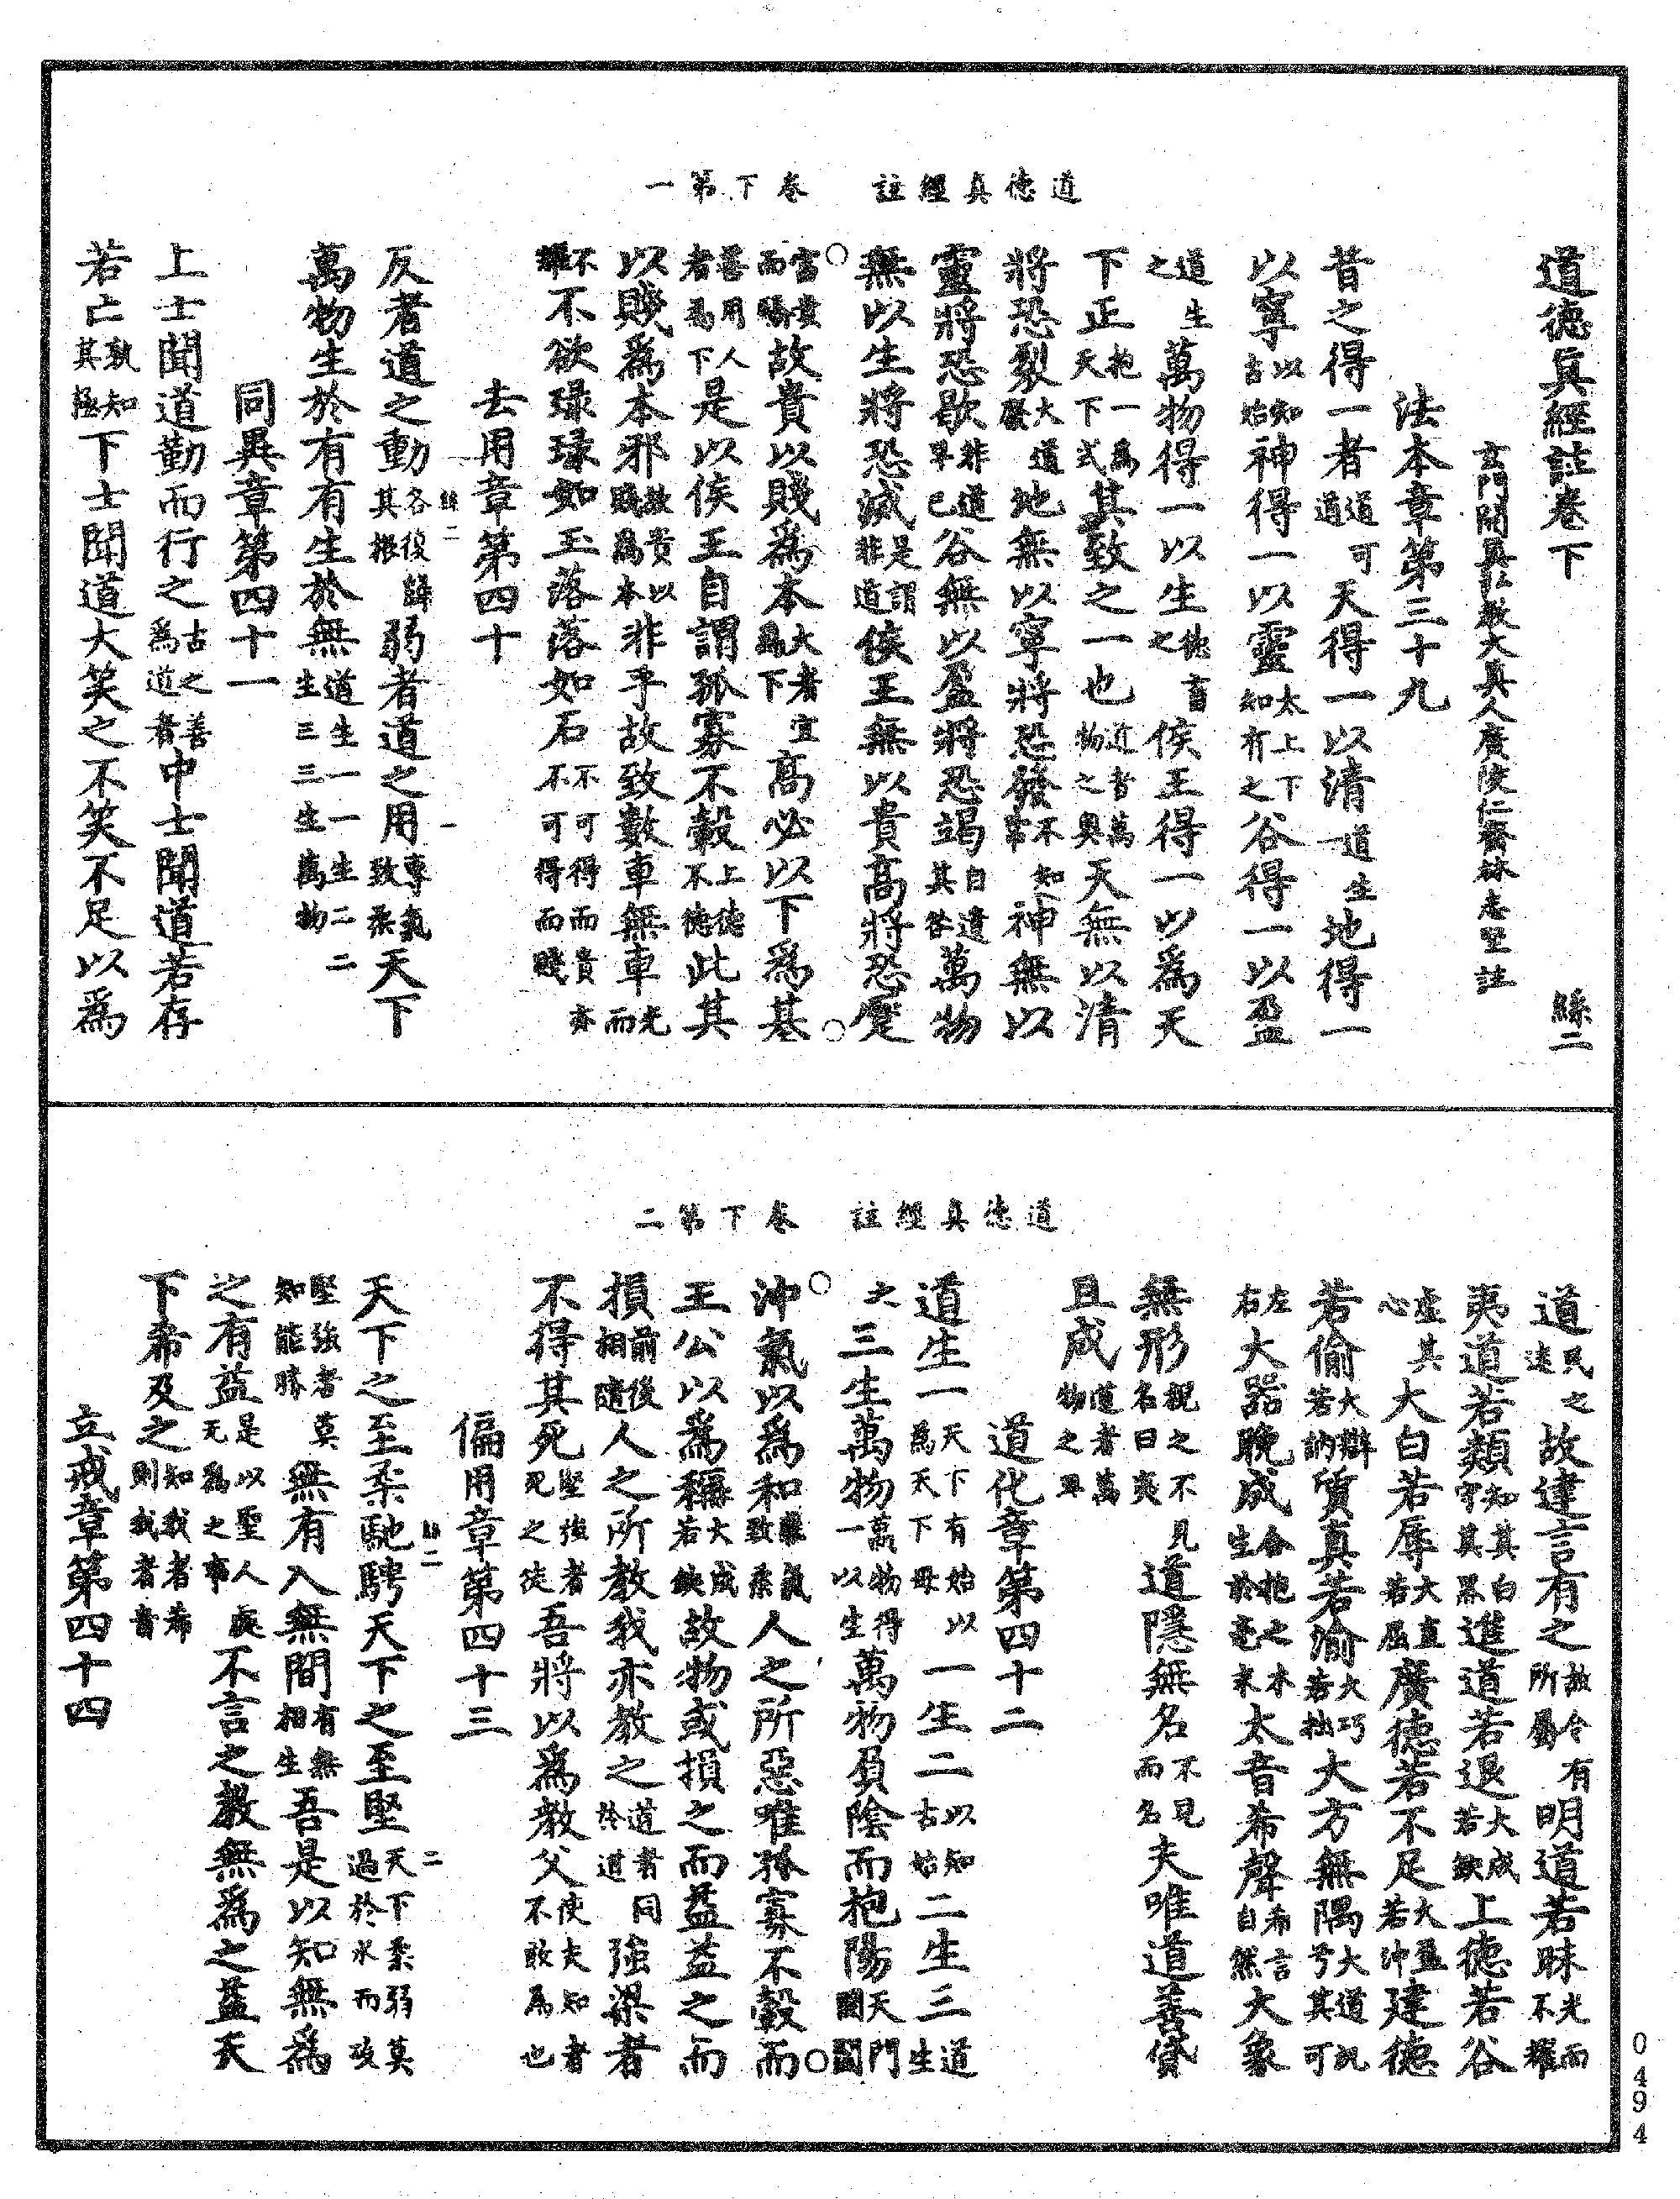 道德真經註　卷下第一
道德真經註卷下　絲二
玄門開真弘教大真人廣陵仁齋林志堅註
法本章第三十九
昔之得一者道可道天得一以清道生一地得一
以寧以知古始神得一以靈太上下知有之谷得一以盈
道生之萬物得一以生德畜之侯王得一以爲天
下正抱一爲天下式其致之一也近者萬物之奧天無以清
將恐裂大道廢地無以寧將恐發不知常神無以
靈將恐歇非道早已谷無以盈將恐竭自遺其咎萬物
無以生將恐滅是謂非道侯王無以貴高將恐蹷
○富貴而驕故貴以賤爲本大者宜爲下高必以下爲基○
善用人者爲下是以侯王自謂孤寡不轂上德不德此其
以賤爲本邪故貴以賤爲本非乎故致數車無車光而
不耀不欲琭琭如玉落落如石不可得而貴亦不可得而賤
去用章第四十
絲二　一
反者道之動各復歸其根弱者道之用專氣致柔天下
萬物生於有有生於無道生一一生二二生三三生萬物
同異章第四十一
上士聞道勤而行之古之善爲道者中士聞道若存
若亡孰知其極下士聞道大笑之不笑不足以爲
道德真經註　卷下第二
道民之迷故建言有之故令有所屬明道若昧光而不耀
夷道若纇知其白守其黑進道若退大成若缺上德若谷
虛其心大白若辱大直若屈廣德若不足大盈若沖建德
若偷大辯若訥質真若渝大巧若拙大方無隅大道汎兮其可
左右大器晚成合抱之木生於毫末太音希聲希言自然大象
無形視之不見名曰夷道隱無名不見而名夫唯道善貸
且成道者萬物之奧
道化章第四十二
道生一天下有始以爲天下母一生二以知古始二生三道生
之三生萬物萬物得一以生萬物負陰而抱陽天門開闔
○沖氣以爲和專氣致柔人之所惡唯孤寡不轂而○
王公以爲稱大成若缺故物或損之而益益之而
損前後相隨人之所教我亦教之道者同於道強梁者
不得其死堅強者死之徒吾將以爲教父使夫知者不敢爲也
偏用章第四十三
絲二　二
天下之至柔馳騁天下之至堅天下柔弱莫過於水而攻
堅強者莫知能勝無有入無間有無相生吾是以知無爲
之有益是以聖人處无爲之事不言之教無爲之益天
下希及之知我者希則我者貴
立戒章第四十四
0494